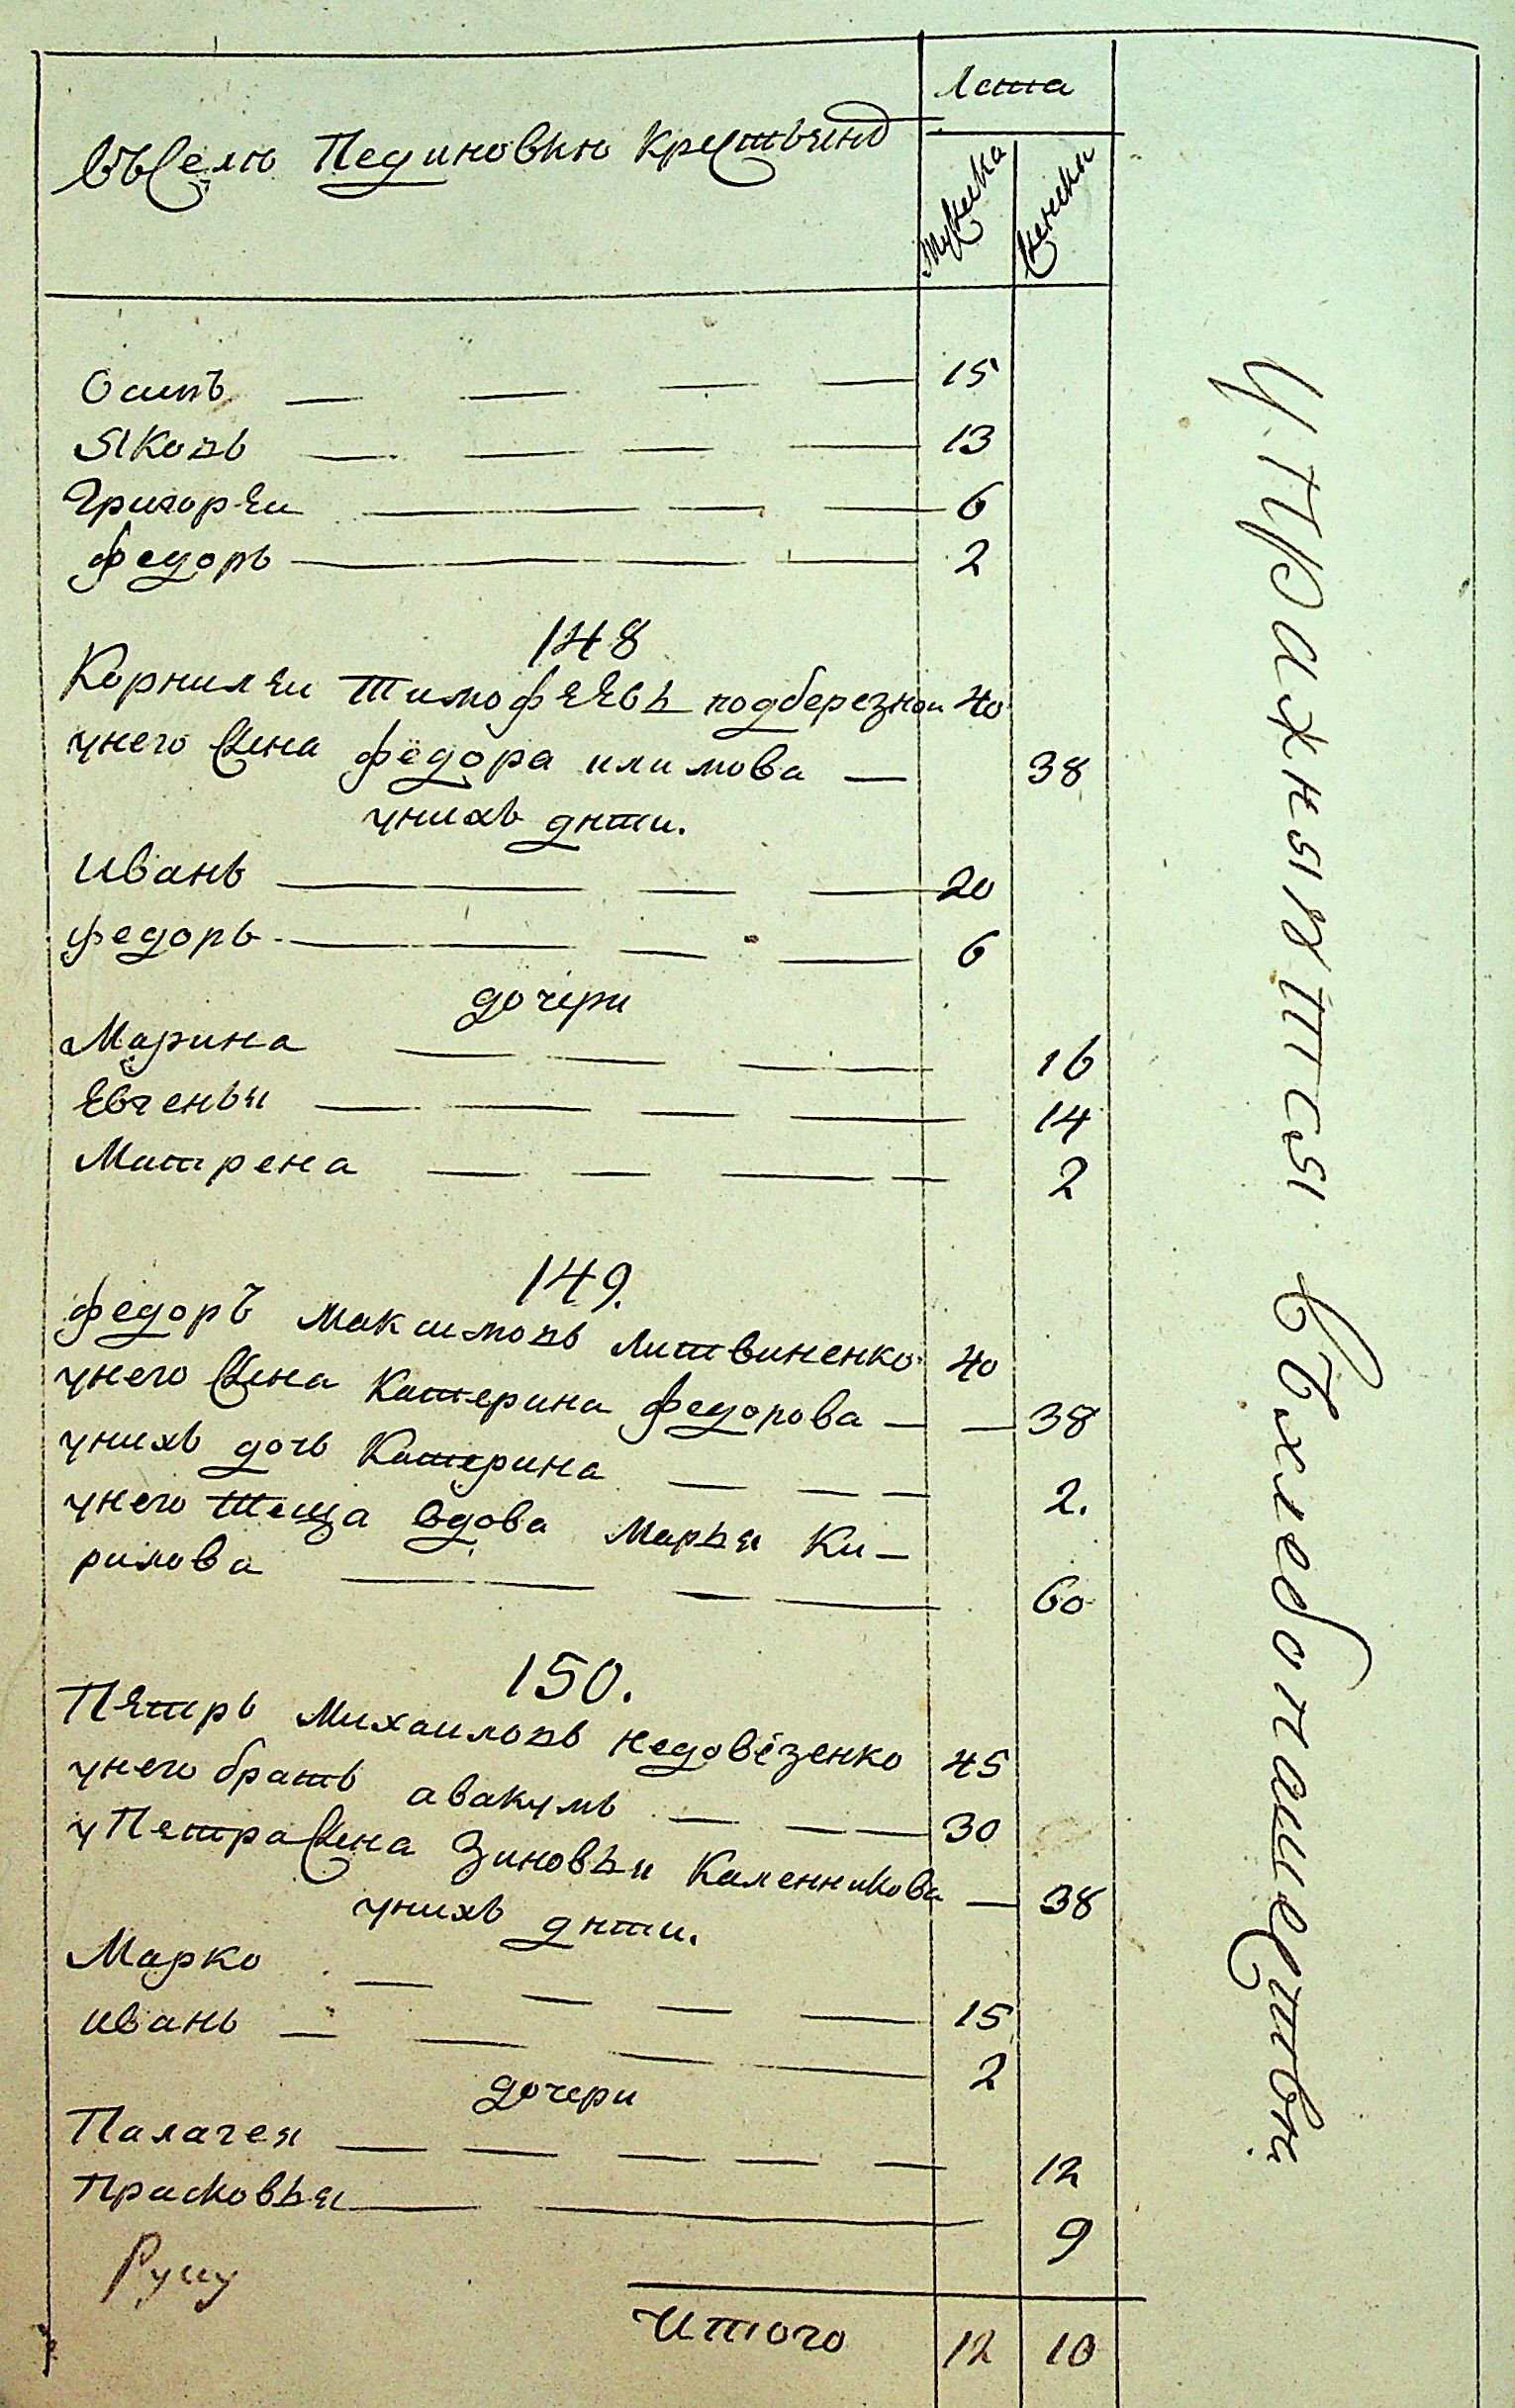 Лета
Въ Селѣ Пединовкѣ Крестьянъ
мужеска
женска
Осипъ 15
Яковъ 13
Григорѣи 6
Федоръ 2
148
Корнилѣи Тимофѣевъ подберезнои 40
унего жена федора климова 38
унихъ дѣти.
Иванъ 20
федоръ 6
дочери
Марина 16
Евгенья 14
Матрена 2
149.
федоръ Максимовъ литвиненко 40
унего жена Катерина федорова 38
унихъ дочь Катерина 2.
унего теща вдова Марья Ки-
рилова 60
150.
Петръ Михаиловъ недовѣзенко 45
унего братъ авакумъ 30
у Петра жена Зиновья Каленникова 38
унихъ дѣти.
Марко 15
иванъ 2
дочери
Палагея 12
Прасковья 9
Руку
Итого 12 10
упражняются въ хлебопашестве